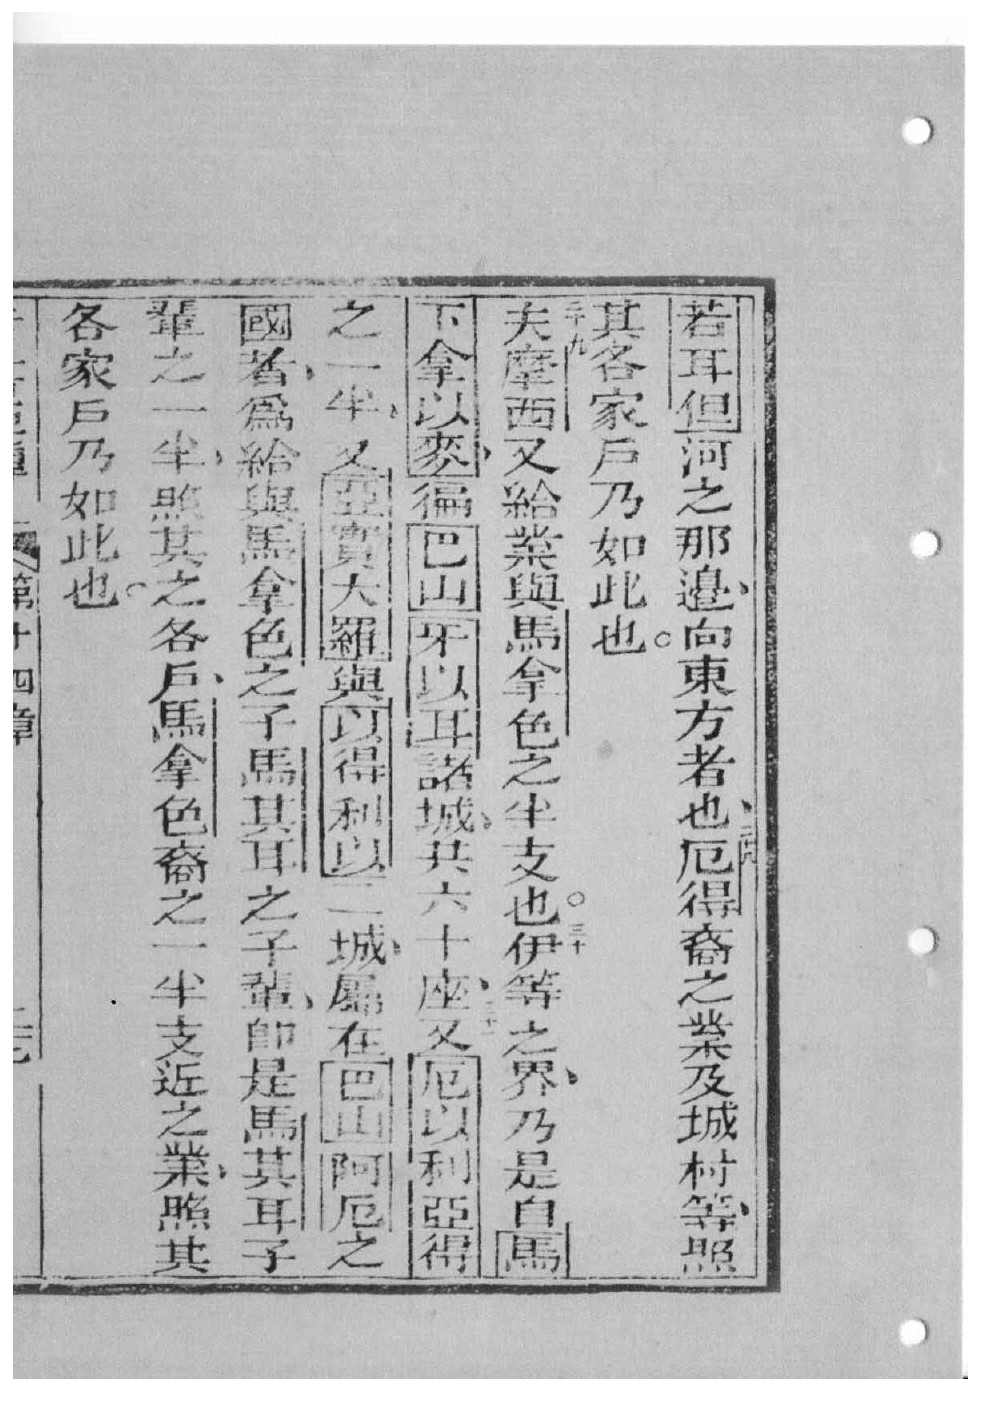 若耳但河之那邉向東方者也二十八厄得裔之業及城村等照
其各家戶乃如此也
二十九夫摩西又給業與馬拿色之半支也三十伊等之界乃是自馬
下拿以麥徧巴山牙以耳諸城共六十座三十一又厄以利亞得
之一半又亞實大羅與以得利以二城屬在巴山阿厄之
國者爲給與馬拿色之子馬其耳之子輩卽是馬其耳子
輩之一半照其之各戶馬拿色裔之一半支近之業照其
各家戶乃如此也
第十四章